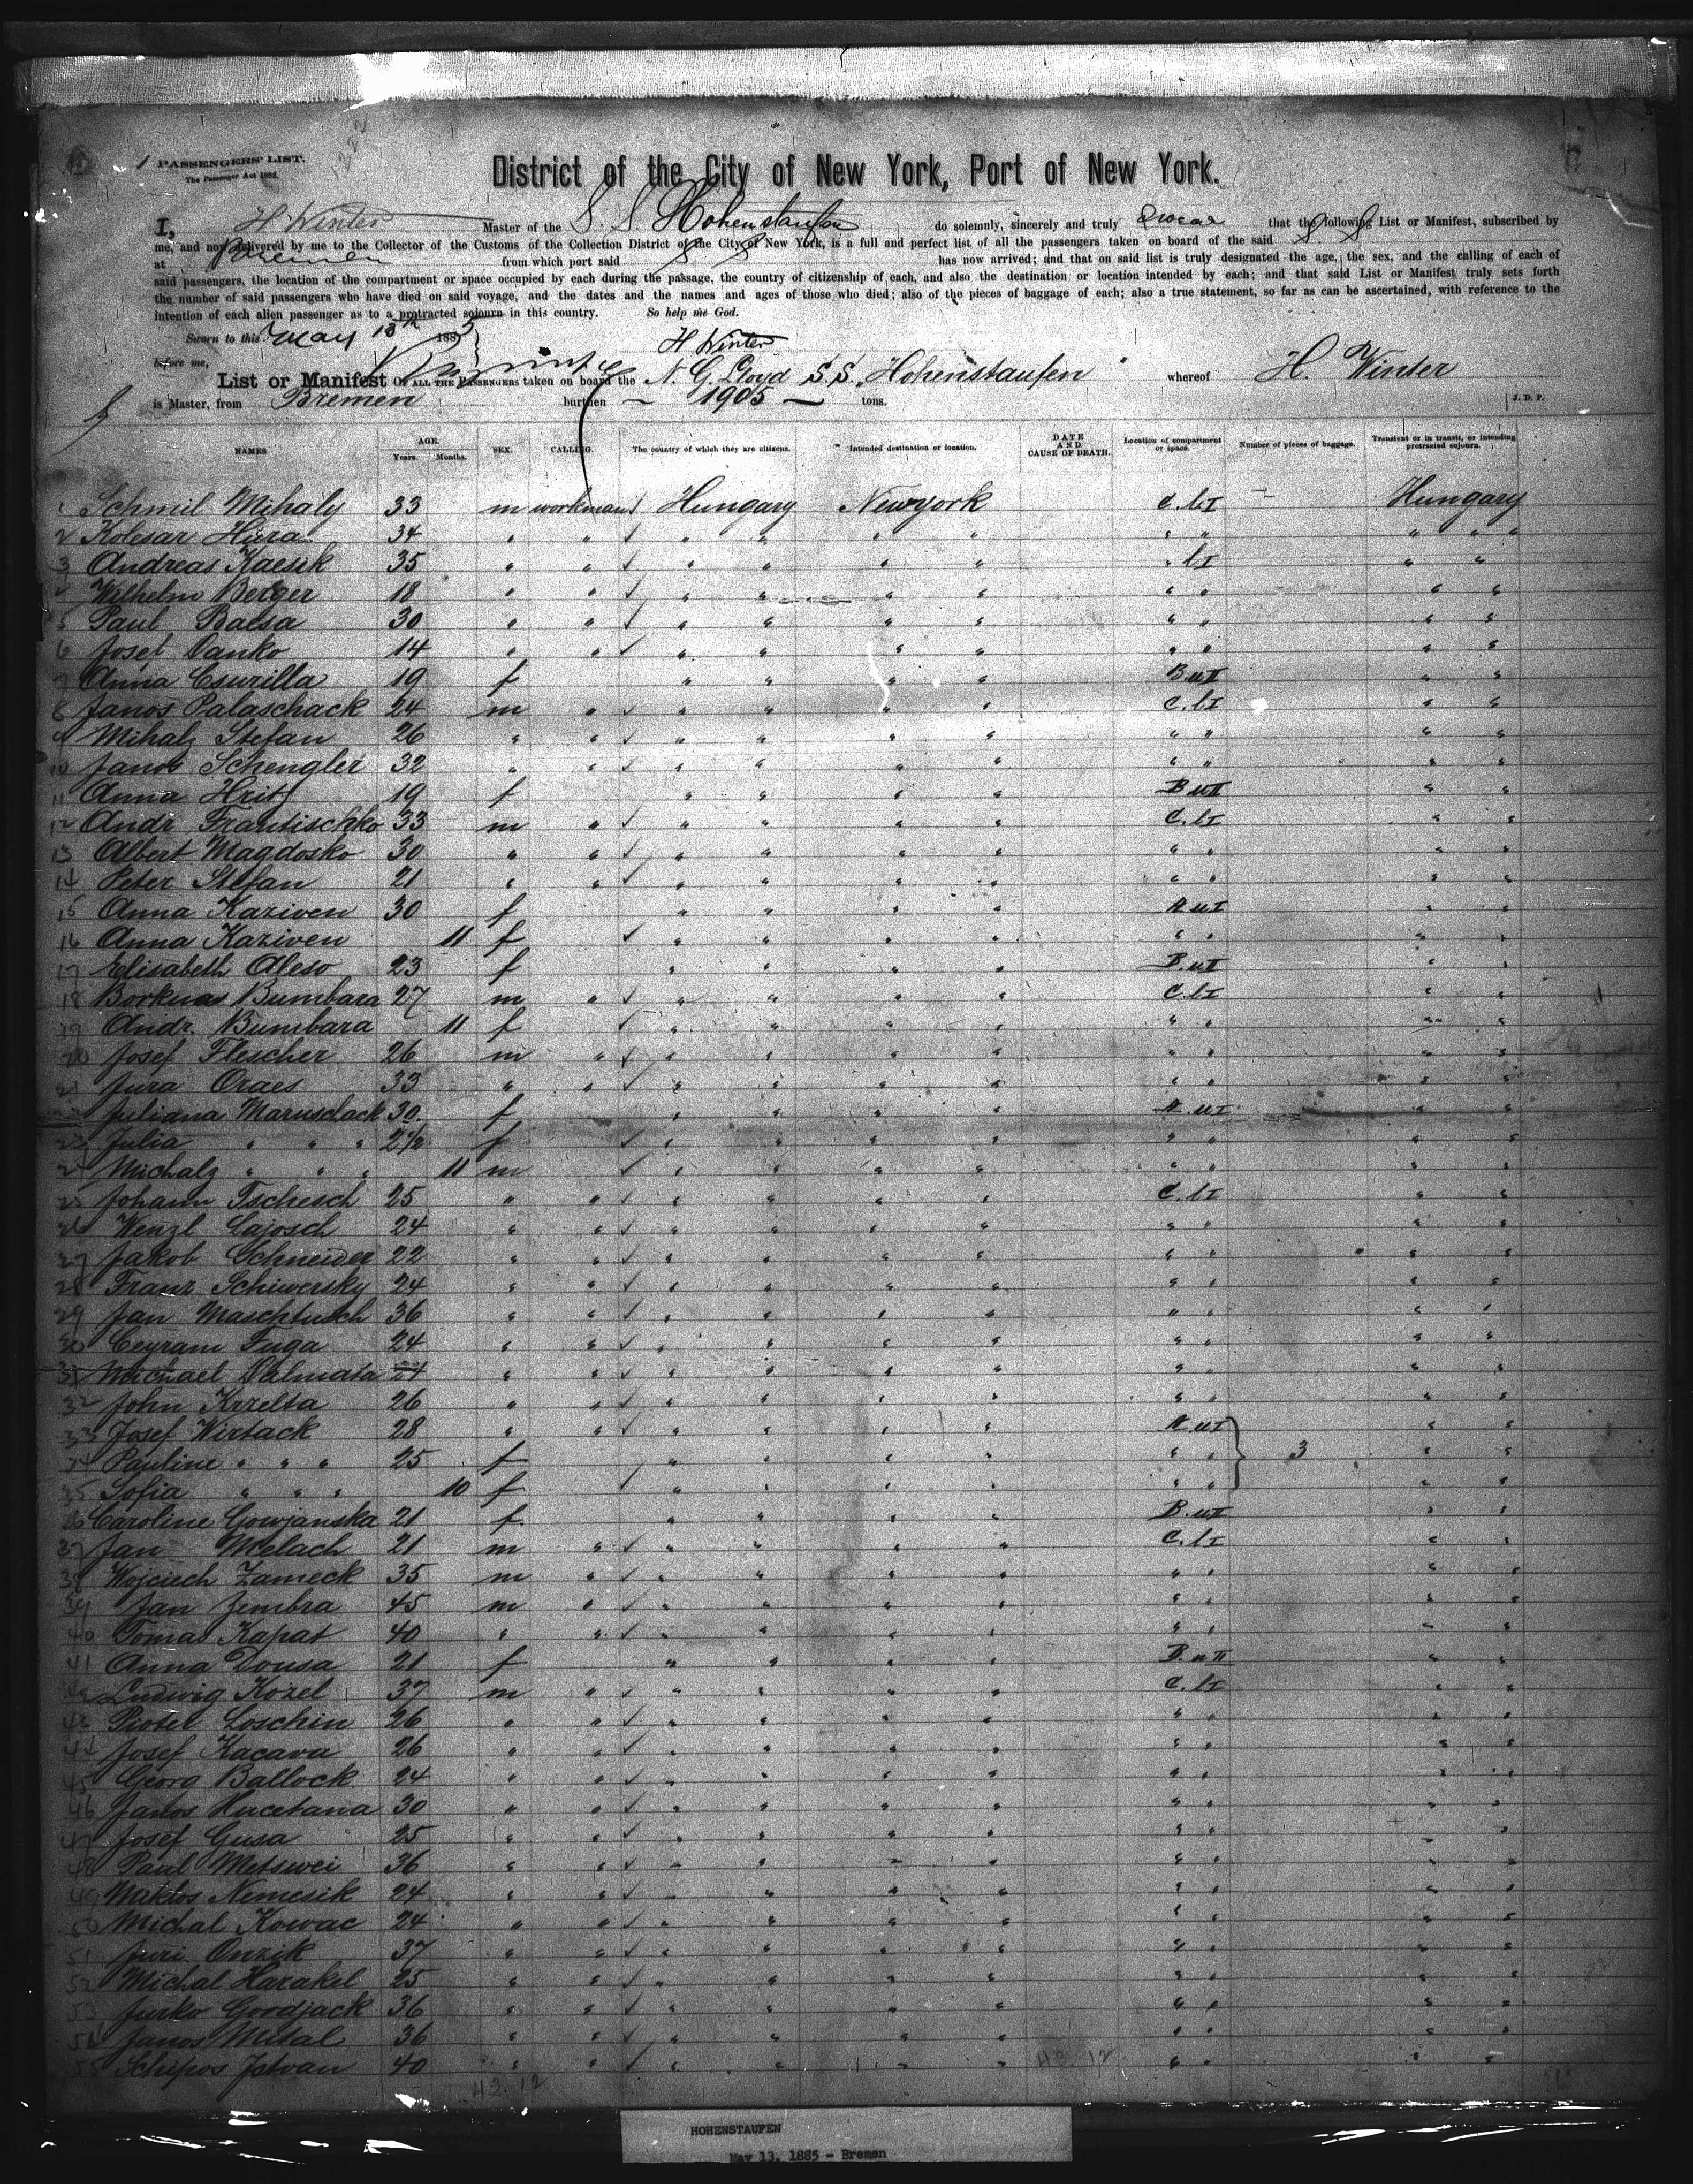 PASSENGERS' LIST.
The Passenger Act 1882.
District of the City of New York, Port of New York.
I, H Winter Master of the S. S. Hohenstaufen do solemnly, sincerely and truly swear that the following List or Manifest, subscribed by
me, and now delivered by me to the Collector of the Customs of the Collection District of the City of New York, is a full and perfect list of all the passengers taken on board of the said S. S.
at Bremen from which port said S. S. has now arrived; and that on said list is truly designated the age, the sex, and the calling of each of
said passengers, the location of the compartment or space occupied by each during the passage, the country of citizenship of each, and also the destination or location intended by each; and that said List or Manifest truly sets forth
the number of said passengers who have died on said voyage, and the dates and the names and ages of those who died; also of the pieces of baggage of each; also a true statement, so far as can be ascertained, with reference to the
intention of each alien passenger as to a protracted sojourn in this country. So help me God.
Sworn to this May 13th 1885
H Winter
before me,
List or Manifest OF ALL THE PASSENGERS taken on board the N. G. Lloyd S.S. "Hohenstaufen" whereof H. Winter
is Master, from Bremen burthen — 1905 — tons. J. D. P.
NAMES AGE. Years. Months. SEX. CALLING. The country of which they are citizens. Intended destination or location. DATE AND CAUSE OF DEATH. Location of compartment or space. Number of pieces of baggage. Transient or in transit, or intending protracted sojourn.
1 Schmil Mihaly 33 m workman Hungary Newyork C. lI Hungary
2 Kolesar Hura 34 " " " " " " " " " "
3 Andreas Kacsik 35 " " " " " " " lI " "
4 Wilhelm Berger 18 " " " " " " " " " "
5 Paul Balsa 30 " " " " " " " " " "
6 Josef Danko 14 " " " " " " " " " "
7 Anna Csurilla 19 f " " " " B uII " "
8 Janos Palaschack 24 m " " " " " C. lI " "
9 Mihaly Stefan 26 " " " " " " " " " "
10 Janos Schengler 32 " " " " " " " " " "
11 Anna Hritz 19 f " " " " B uII " "
12 Andr Frantischko 33 m " " " " " C. lI " "
13 Albert Magdosko 30 " " " " " " " " " "
14 Peter Stefan 21 " " " " " " " " " "
15 Anna Kaziven 30 f " " " " A uI " "
16 Anna Kaziven 11 f " " " " " " " "
17 Elisabeth Aleso 23 f " " " " B. uII " "
18 Borkuas Bumbara 27 m " " " " " C. lI " "
19 Andr. Bumbara 11 f " " " " " " " "
20 Josef Flescher 26 m " " " " " " " " "
21 Jura Oraes 33 " " " " " " " " " "
22 Juliana Maruschack 30. f " " " " A. uI " "
23 Julia " " " 2½ f " " " " " " " "
24 Michaly " " " 11 m " " " " " " " "
25 Johann Tschesch 25 " " " " " " C. lI " "
26 Wenzl Lajosch 24 " " " " " " " " " "
27 Jakob Schneider 22 " " " " " " " " " "
28 Franz Schiwersky 24 " " " " " " " " " "
29 Jan Maschtusch 36 " " " " " " " " " "
30 Ceyram Fuga 24 " " " " " " " " " "
31 Michael Dalmata 21 " " " " " " " " " "
32 John Krzelsa 26 " " " " " " " " " "
33 Josef Wirtack 28 " " " " " " A uI " "
34 Pauline " " " 25 f " " " " " " 3 " "
35 Sofia " " " 10 f " " " " " " " "
36 Caroline Gowjanska 21 f. " " " " B. uII " "
37 Jan Melach 21 m " " " " " C. lI " "
38 Wojciech Zameck 35 m " " " " " " " " "
39 Jan Zembra 45 m " " " " " " " " "
40 Tomas Kapat 40 " " " " " " " " " "
41 Anna Dousa 21 f " " " " B. u II " "
42 Ludwig Kozel 37 m " " " " " C. lI " "
43 Piotel Loschin 26 " " " " " " " " " "
44 Josef Kacava 26 " " " " " " " " " "
45 Georg Ballock 24 " " " " " " " " " "
46 Janos Hucetana 30 " " " " " " " " " "
47 Josef Gusa 25 " " " " " " " " " "
48 Paul Metswei 36 " " " " " " " " " "
49 Miklos Nemcsik 24 " " " " " " " " " "
50 Michal Kowac 24 " " " " " " " " " "
51 Juri Onzik 37 " " " " " " " " " "
52 Michal Harakel 25 " " " " " " " " " "
53 Jurko Gordjack 36 " " " " " " " " " "
54 Janos Mital 36 " " " " " " " " " "
55 Schipos Istvan 40 " " " " " " " " " "
43.12 43.12
HOHENSTAUFEN
May 13, 1885 - Bremen